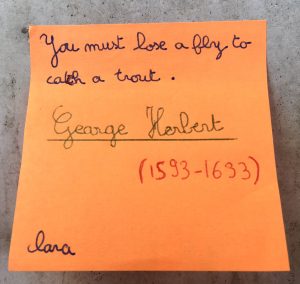 You must lose a fly to
catch a trout.
George Herbert
(1593-1633)
lara